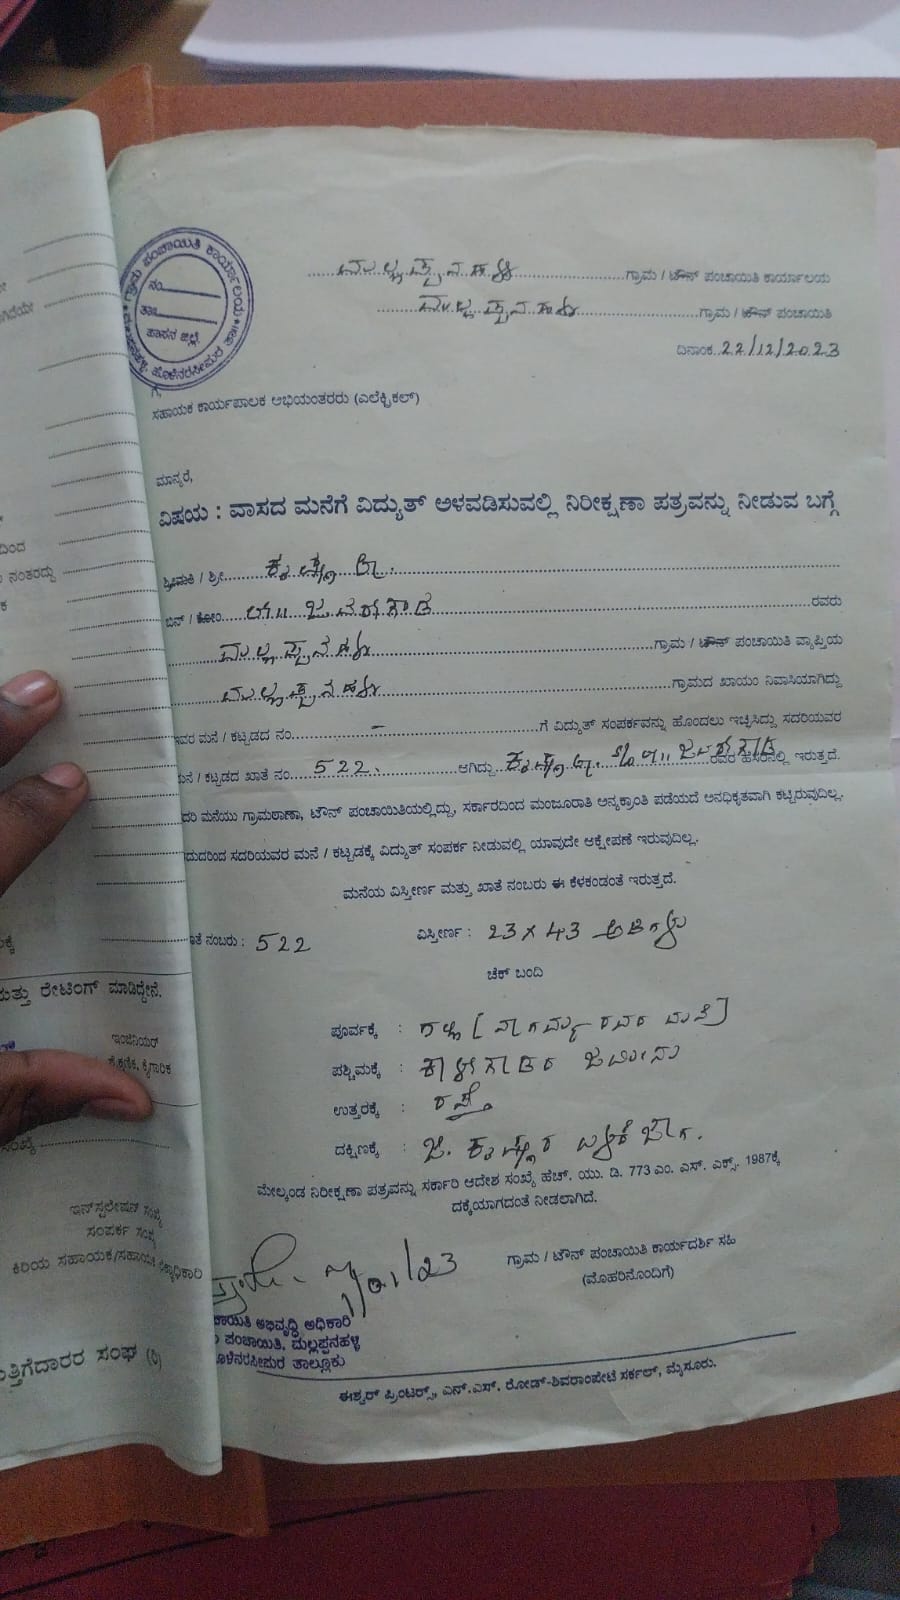 ಗ್ರಾಮ ಪಂಚಾಯಿತಿ ಕಾರ್ಯಾಲಯ
ನಂ
ತಾಃ
ಹಾಸನ ಜಿಲ್ಲೆ
ಹೊಳೆನರಸೀಪುರ ತಾ॥
ಮಲ್ಲಪ್ಪನಹಳ್ಳಿ ಗ್ರಾಮ / ಟೌನ್ ಪಂಚಾಯಿತಿ ಕಾರ್ಯಾಲಯ
ಮಲ್ಲಪ್ಪನಹಳ್ಳಿ ಗ್ರಾಮ / ಟೌನ್ ಪಂಚಾಯಿತಿ
ದಿನಾಂಕ 22/12/2023
ಗೆ,
ಸಹಾಯಕ ಕಾರ್ಯಪಾಲಕ ಅಭಿಯಂತರರು (ಎಲೆಕ್ಟ್ರಿಕಲ್)
ಮಾನ್ಯರೆ,
ವಿಷಯ : ವಾಸದ ಮನೆಗೆ ವಿದ್ಯುತ್ ಅಳವಡಿಸುವಲ್ಲಿ ನಿರೀಕ್ಷಣಾ ಪತ್ರವನ್ನು ನೀಡುವ ಬಗ್ಗೆ
ಶ್ರೀಮತಿ / ಶ್ರೀ ಕೃಷ್ಣ
ಬಿನ್ / ಕೋಂ ಲೇ॥ ಜವರೇಗೌಡ ರವರು
ಮಲ್ಲಪ್ಪನಹಳ್ಳಿ ಗ್ರಾಮ / ಟೌನ್ ಪಂಚಾಯಿತಿ ವ್ಯಾಪ್ತಿಯ
ಮಲ್ಲಪ್ಪನಹಳ್ಳಿ ಗ್ರಾಮದ ಖಾಯಂ ನಿವಾಸಿಯಾಗಿದ್ದು
ಇವರ ಮನೆ / ಕಟ್ಟಡದ ನಂ. – ಗೆ ವಿದ್ಯುತ್ ಸಂಪರ್ಕವನ್ನು ಹೊಂದಲು ಇಚ್ಛಿಸಿದ್ದು ಸದರಿಯವರ
ಮನೆ / ಕಟ್ಟಡದ ಖಾತೆ ನಂ. 522. ಆಗಿದ್ದು ಕೃಷ್ಣ ಲೇ॥ ಜವರೇಗೌಡ ರವರ ಹೆಸರಿನಲ್ಲಿ ಇರುತ್ತದೆ.
ದರಿ ಮನೆಯು ಗ್ರಾಮಠಾಣಾ, ಟೌನ್ ಪಂಚಾಯಿತಿಯಲ್ಲಿದ್ದು, ಸರ್ಕಾರದಿಂದ ಮಂಜೂರಾತಿ ಅನ್ಯಕ್ರಾಂತಿ ಪಡೆಯದೆ ಅನಧಿಕೃತವಾಗಿ ಕಟ್ಟಿರುವುದಿಲ್ಲ.
ದುದರಿಂದ ಸದರಿಯವರ ಮನೆ / ಕಟ್ಟಡಕ್ಕೆ ವಿದ್ಯುತ್ ಸಂಪರ್ಕ ನೀಡುವಲ್ಲಿ ಯಾವುದೇ ಆಕ್ಷೇಪಣೆ ಇರುವುದಿಲ್ಲ.
ಮನೆಯ ವಿಸ್ತೀರ್ಣ ಮತ್ತು ಖಾತೆ ನಂಬರು ಈ ಕೆಳಕಂಡಂತೆ ಇರುತ್ತದೆ.
ತೆ ನಂಬರು : 522 ವಿಸ್ತೀರ್ಣ : 23 x 43 ಅಡಿಗಳು
ಚೆಕ್ ಬಂದಿ
ಪೂರ್ವಕ್ಕೆ : ಗಲ್ಲಿ [ ರವರ ಮನೆ]
ಪಶ್ಚಿಮಕ್ಕೆ : ಕಾಳೇಗೌಡರ ಜಮೀನು
ಉತ್ತರಕ್ಕೆ : ರಸ್ತೆ
ದಕ್ಷಿಣಕ್ಕೆ : ಜೆ. ಕೃಷ್ಣರ ಬಳಕೆ ಜಾಗ.
ಮೇಲ್ಕಂಡ ನಿರೀಕ್ಷಣಾ ಪತ್ರವನ್ನು ಸರ್ಕಾರಿ ಆದೇಶ ಸಂಖ್ಯೆ ಹೆಚ್. ಯು. ಡಿ. 773 ಎಂ. ಎಸ್. ಎಕ್ಸ್. 1987ಕ್ಕೆ
ದಕ್ಕೆಯಾಗದಂತೆ ನೀಡಲಾಗಿದೆ.
ಗ್ರಾಮ / ಟೌನ್ ಪಂಚಾಯಿತಿ ಕಾರ್ಯದರ್ಶಿ ಸಹಿ
(ಮೊಹರಿನೊಂದಿಗೆ)
ಚಾಯಿತಿ ಅಭಿವೃದ್ಧಿ ಅಧಿಕಾರಿ
ಪಂಚಾಯಿತಿ, ಮಲ್ಲಪ್ಪನಹಳ್ಳಿ
ಹೊಳೆನರಸೀಪುರ ತಾಲ್ಲೂಕು
ಈಶ್ವರ್ ಪ್ರಿಂಟರ್ಸ್, ಎನ್.ಎಸ್. ರೋಡ್-ಶಿವರಾಂಪೇಟೆ ಸರ್ಕಲ್, ಮೈಸೂರು.
ದಿಂದ
ನಂತರದ್ದು
ಮತ್ತು ರೇಟಿಂಗ್ ಮಾಡಿದ್ದೇನೆ.
ಇಂಜಿನಿಯರ್
ಕೈಗಾರಿಕ
ಸಂಖ್ಯೆ
ಇನ್‌ಸ್ಟಲೇಷನ್ ಸಂಖ್ಯೆ
ಸಂಪರ್ಕ ಸಂಖ್ಯೆ
ಕಿರಿಯ ಸಹಾಯಕ/ಸಹಾಯಕ
ತ್ತಿಗೆದಾರರ ಸಂಘ (ರಿ)